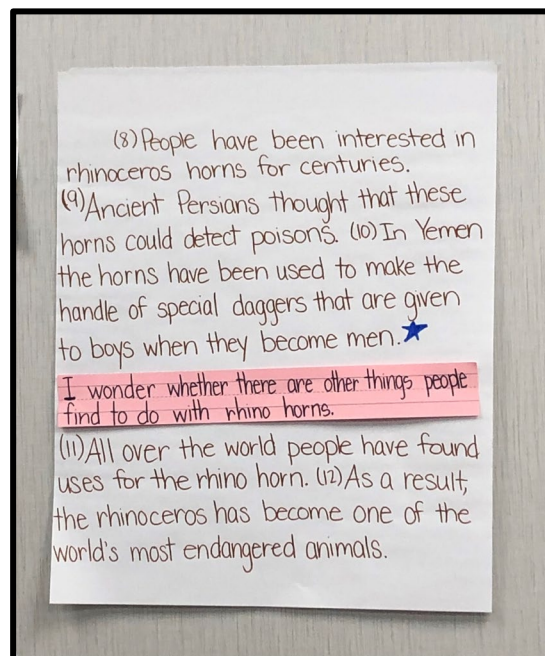 (8) People have been interested in
rhinoceros horns for centuries.
(9) Ancient Persians thought that these
horns could detect poisons. (10) In Yemen
the horns have been used to make the
handle of special daggers that are given
to boys when they become men.
I wonder whether there are other things people
find to do with rhino horns.
(11) All over the world people have found
uses for the rhino horn. (12) As a result,
the rhinoceros has become one of the
world's most endangered animals.